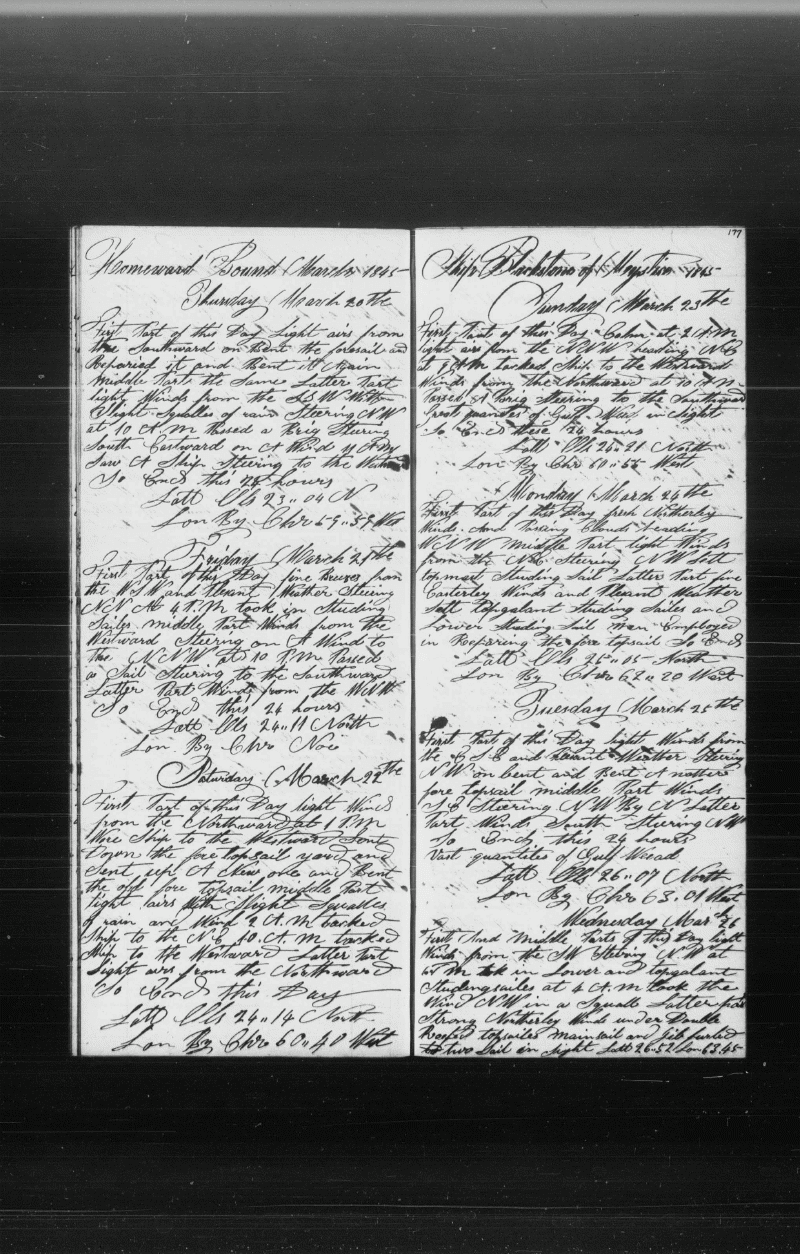 Homeward Bound March 1845
Thursday March 20th
First Part of this Day Light airs from
the Southward on Bent the foresail and
Reparied it and Bent it Again
Middle Part the Same Latter Part
light Winds from the SSW With
Slight Squalles of rain Steering NW
at 10 A.M Passed a Brig Steering
South Eastward on A Wind 11 A.M
Saw A Ship Steering to the Westward
So Ends this 24 hours
Latt Obs 23 " 04 N
Lon By Chro 59 " 59 West
Friday March 21th
First Part of this Day fine Breeses from
the WSW and Plesant Weather Steering
NNW 4 P.M took in Studing
Sailes middle Part Winds from the
Westward Steering on A Wind to
the NNW at 10 P.M Passed
a Sail Steering to the Southward
Latter Part Winds from the WNW
So Ends this 24 hours
Latt Obs 24 " 11 North
Lon By Chro
Saturday March 22th
First Part of this Day light Winds
from the Northward at 1 P.M
Wore Ship to the Westward Sent
Down the fore topsail yard and
Sent up A New one and Bent
the old fore topsail middle Part
light airs With Slight Squalles
of rain and Wind 2 A.M tacked
Ship to the NE 10 A.M tacked
Ship to the Westward Latter Part
Light airs from the Northward
So Ends this Day
Latt Obs 24 " 14 North
Lon By Chro 60 " 40 West
177
Ship Blackstone of Mystic 1845
Sunday March 23th
First Part of this Day Calm at 2 A.M
light airs from the NNW heading NE
at 9 A.M tacked Ship to the Westward
Winds from the Northward at 10 A.M
Passed A Brig Steering to the Southward
Great quantes of Gulf Weed in Sight
So Ends these 24 hours
Latt Obs 24 " 21 North
Lon By Chro 60 " 55 West
Monday March 24th
First Part of this Day fresh Northerley
Winds And Passing Clouds heading
WNW middle Part light Winds
from the NE Steering NW Sett
topmast Studing Sail Latter Part fine
Easterley Winds and Plesant Weather
Sett topgalant Studing Sailes and
Lower Studing Sail men Employed
in Repering the fore topsail So Ends
Latt Obs 25 " 05 North
Lon By Chro 62 " 20 West
Tuesday March 25th
First Part of this Day light Winds from
the ESE and Plesant Weather Steering
NW on bent and Bent A nother
fore topsail middle Part Winds
SE Steering NW By N Latter
Part Winds South Steering NW
So Ends this 24 hours
Vast quantites of Gulf Weead
Latt Obs 26 " 07 North
Lon By Chro 63 " 01 West
Wednesday Mar 26
First And Middle Parts of this Day light
Winds from the SW Steering NW at
P.M tok in Lower and topgalant
Studingsailes at 4 A.M took the
Wind NW in a Squall Latter part
Strong Northerley Winds under Double
Reefed topsailes mainsail and Jib furled
two Sail in Sight Latt 26 " 52 Lon 63.45